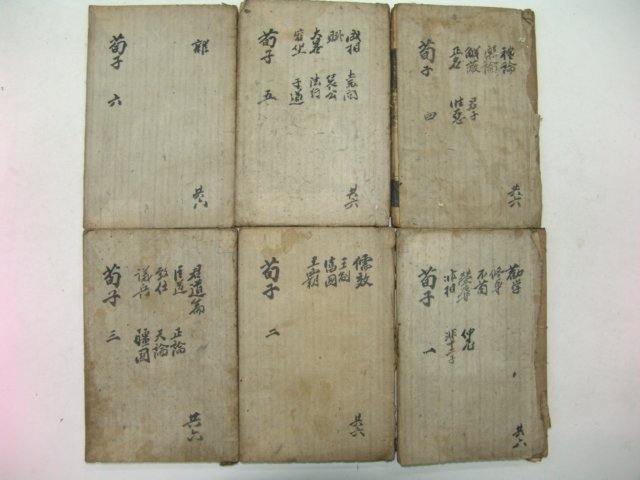 荀子 六
雜
共六
荀子 五
成相 堯問
賦 哀公
大畧 法行
宥坐 子道
共六
荀子 四
禮論
樂論
解蔽 君子
正名 性惡
共六
荀子 三
君道篇
臣道 正論
致仕 天論
議兵 彊國
共六
荀子 二
儒效
王制
富國
王霸
共六
荀子 一
勸学
修身
不苟 仲尼
榮辱 非十二子
非相
共六